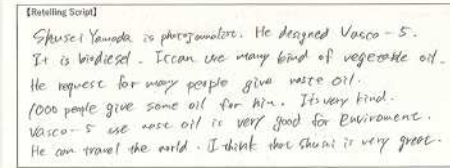 【Retelling Script】
Shusei Yamada is photojournalist. He designed Vasco-5.
It is biodiesel. It can use many kind of vegetable oil.
He request for many people give waste oil.
1000 people give some oil for him. Its very kind.
Vasco-5 use waste oil is very good for Enviroment.
He can travel the world. I think that shusei is very great.